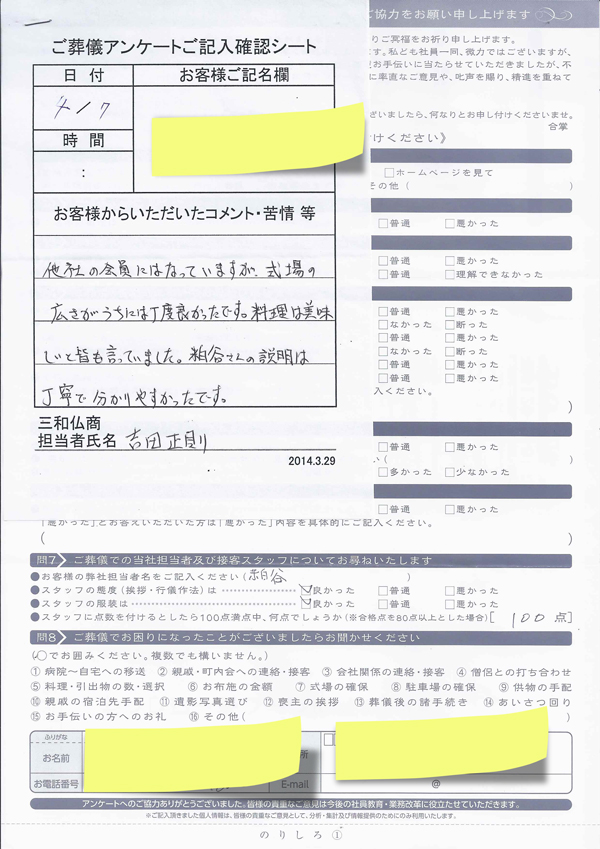 ご協力をお願い申し上げます
ご葬儀アンケートご記入確認シート
日付
お客様ご記名欄
4/7
時間
:
お客様からいただいたコメント・苦情 等
他社の会員にはなっていますが、式場の
広さがうちには丁度良かったです。料理は美味
しいと皆も言っていました。粕谷さんの説明は
丁寧で分かりやすかったです。
三和仏商
担当者氏名 吉田正則
2014.3.29
りご冥福をお祈り申し上げます。
す。私ども社員一同、微力ではございますが、
お手伝いに当たらせていただきましたが、不
に率直なご意見や、叱声を賜り、精進を重ねて
ざいましたら、何なりとお申し付けくださいませ。
合掌
付けください》
□ホームページを見て
その他( )
□普通 □悪かった
□普通 □悪かった
□普通 □理解できなかった
□普通 □悪かった
□なかった □断った
□普通 □悪かった
□なかった □断った
□普通 □悪かった
□普通 □悪かった
入ください。
)
□普通 □悪かった
い( )
□多かった □少なかった
□普通 □悪かった
「悪かった」とお答えいただいた方は「悪かった」内容を具体的にご記入ください。
( )
問7 ご葬儀での当社担当者及び接客スタッフについてお尋ねいたします
●お客様の弊社担当者名をご記入ください(粕谷 )
●スタッフの態度(挨拶・行儀作法)は ☑良かった □普通 □悪かった
●スタッフの服装は ☑良かった □普通 □悪かった
●スタッフに点数を付けるとしたら100点満点中、何点でしょうか(※合格点を80点以上とした場合)[ 100 点]
問8 ご葬儀でお困りになったことがございましたらお聞かせください
(○でお囲みください。複数でも構いません。)
①病院〜自宅への移送 ②親戚・町内会への連絡・接客 ③会社関係の連絡・接客 ④僧侶との打ち合わせ
⑤料理・引出物の数・選択 ⑥お布施の金額 ⑦式場の確保 ⑧駐車場の確保 ⑨供物の手配
⑩親戚の宿泊先手配 ⑪遺影写真選び ⑫喪主の挨拶 ⑬葬儀後の諸手続き ⑭あいさつ回り
⑮お手伝いの方へのお礼 ⑯その他( )
ふりがな
お名前
所
お電話番号
E-mail
@
アンケートへのご協力ありがとうございました。皆様の貴重なご意見は今後の社員教育・業務改革に役立たせていただきます。
※ご記入頂きました個人情報は、皆様の貴重なご意見として、分析・集計及び情報提供のためにのみ利用いたします。
のりしろ①